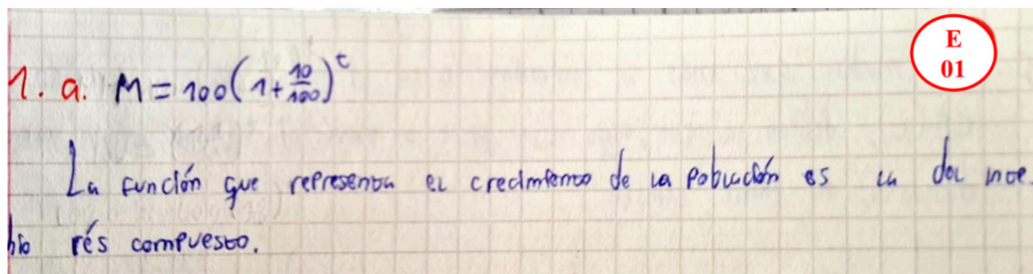 E
01
1. a. M = 100(1 + 10/100)^t
La función que representa el crecimiento de la población es la del inte.
rés compuesto.